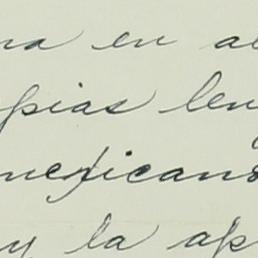 na en al
opias len
mexicano
y la ap